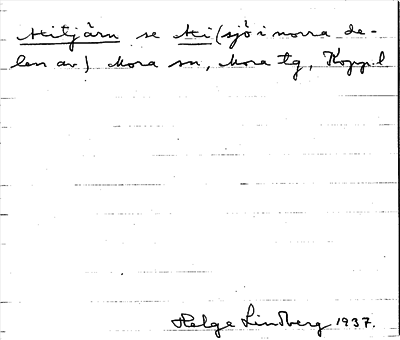 Mitjärn se Mi (sjö i norra de-
len av) Mora sn, Mora tg, Kopp. l
Helge Lindberg 1937.